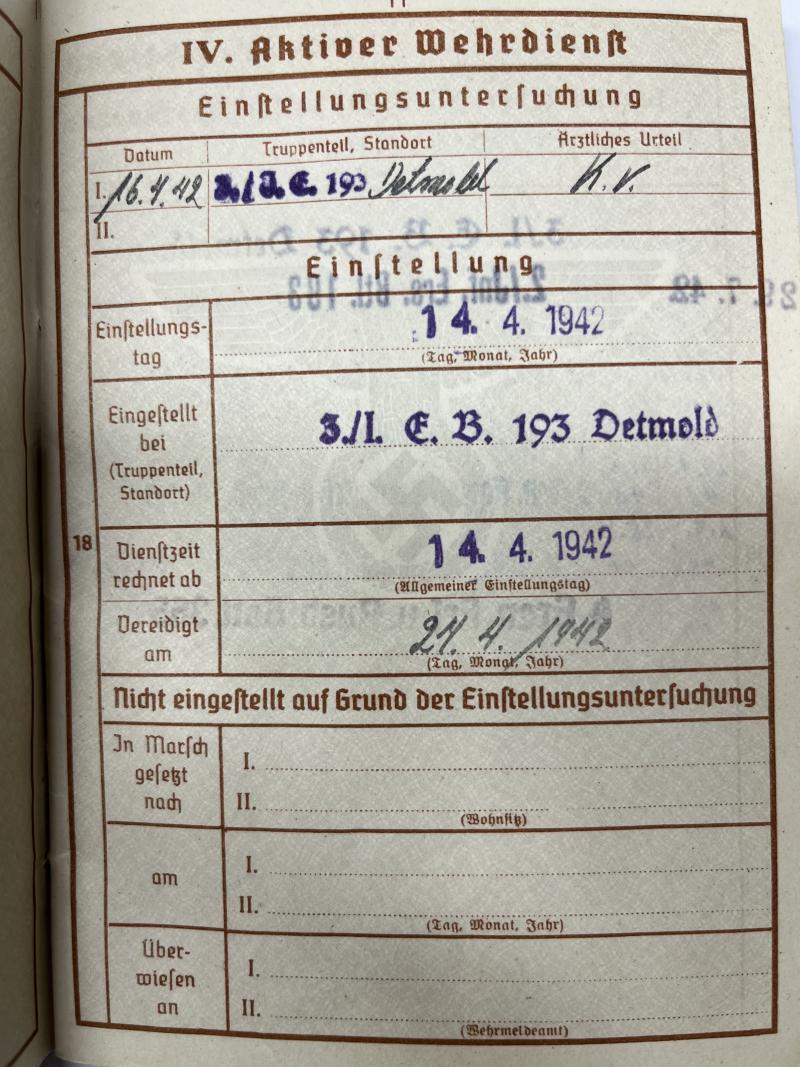 IV. Aktiver Wehrdienst
Einstellungsuntersuchung
Datum Truppenteil, Standort Ärztliches Urteil
I. 16.4.42 3./I. E. 193 Detmold K.v.
II.
Einstellung
Einstellungs-
tag
14. 4. 1942
(Tag, Monat, Jahr)
Eingestellt
bei
(Truppenteil,
Standort)
3./I. E. B. 193 Detmold
18
Dienstzeit
rechnet ab
14. 4. 1942
(Allgemeiner Einstellungstag)
Vereidigt
am
4. 1942
(Tag, Monat, Jahr)
Nicht eingestellt auf Grund der Einstellungsuntersuchung
In Marsch
gesetzt
nach
I.
II.
(Wohnsitz)
am
I.
II.
(Tag, Monat, Jahr)
Über-
wiesen
an
I.
II.
(Wehrmeldeamt)